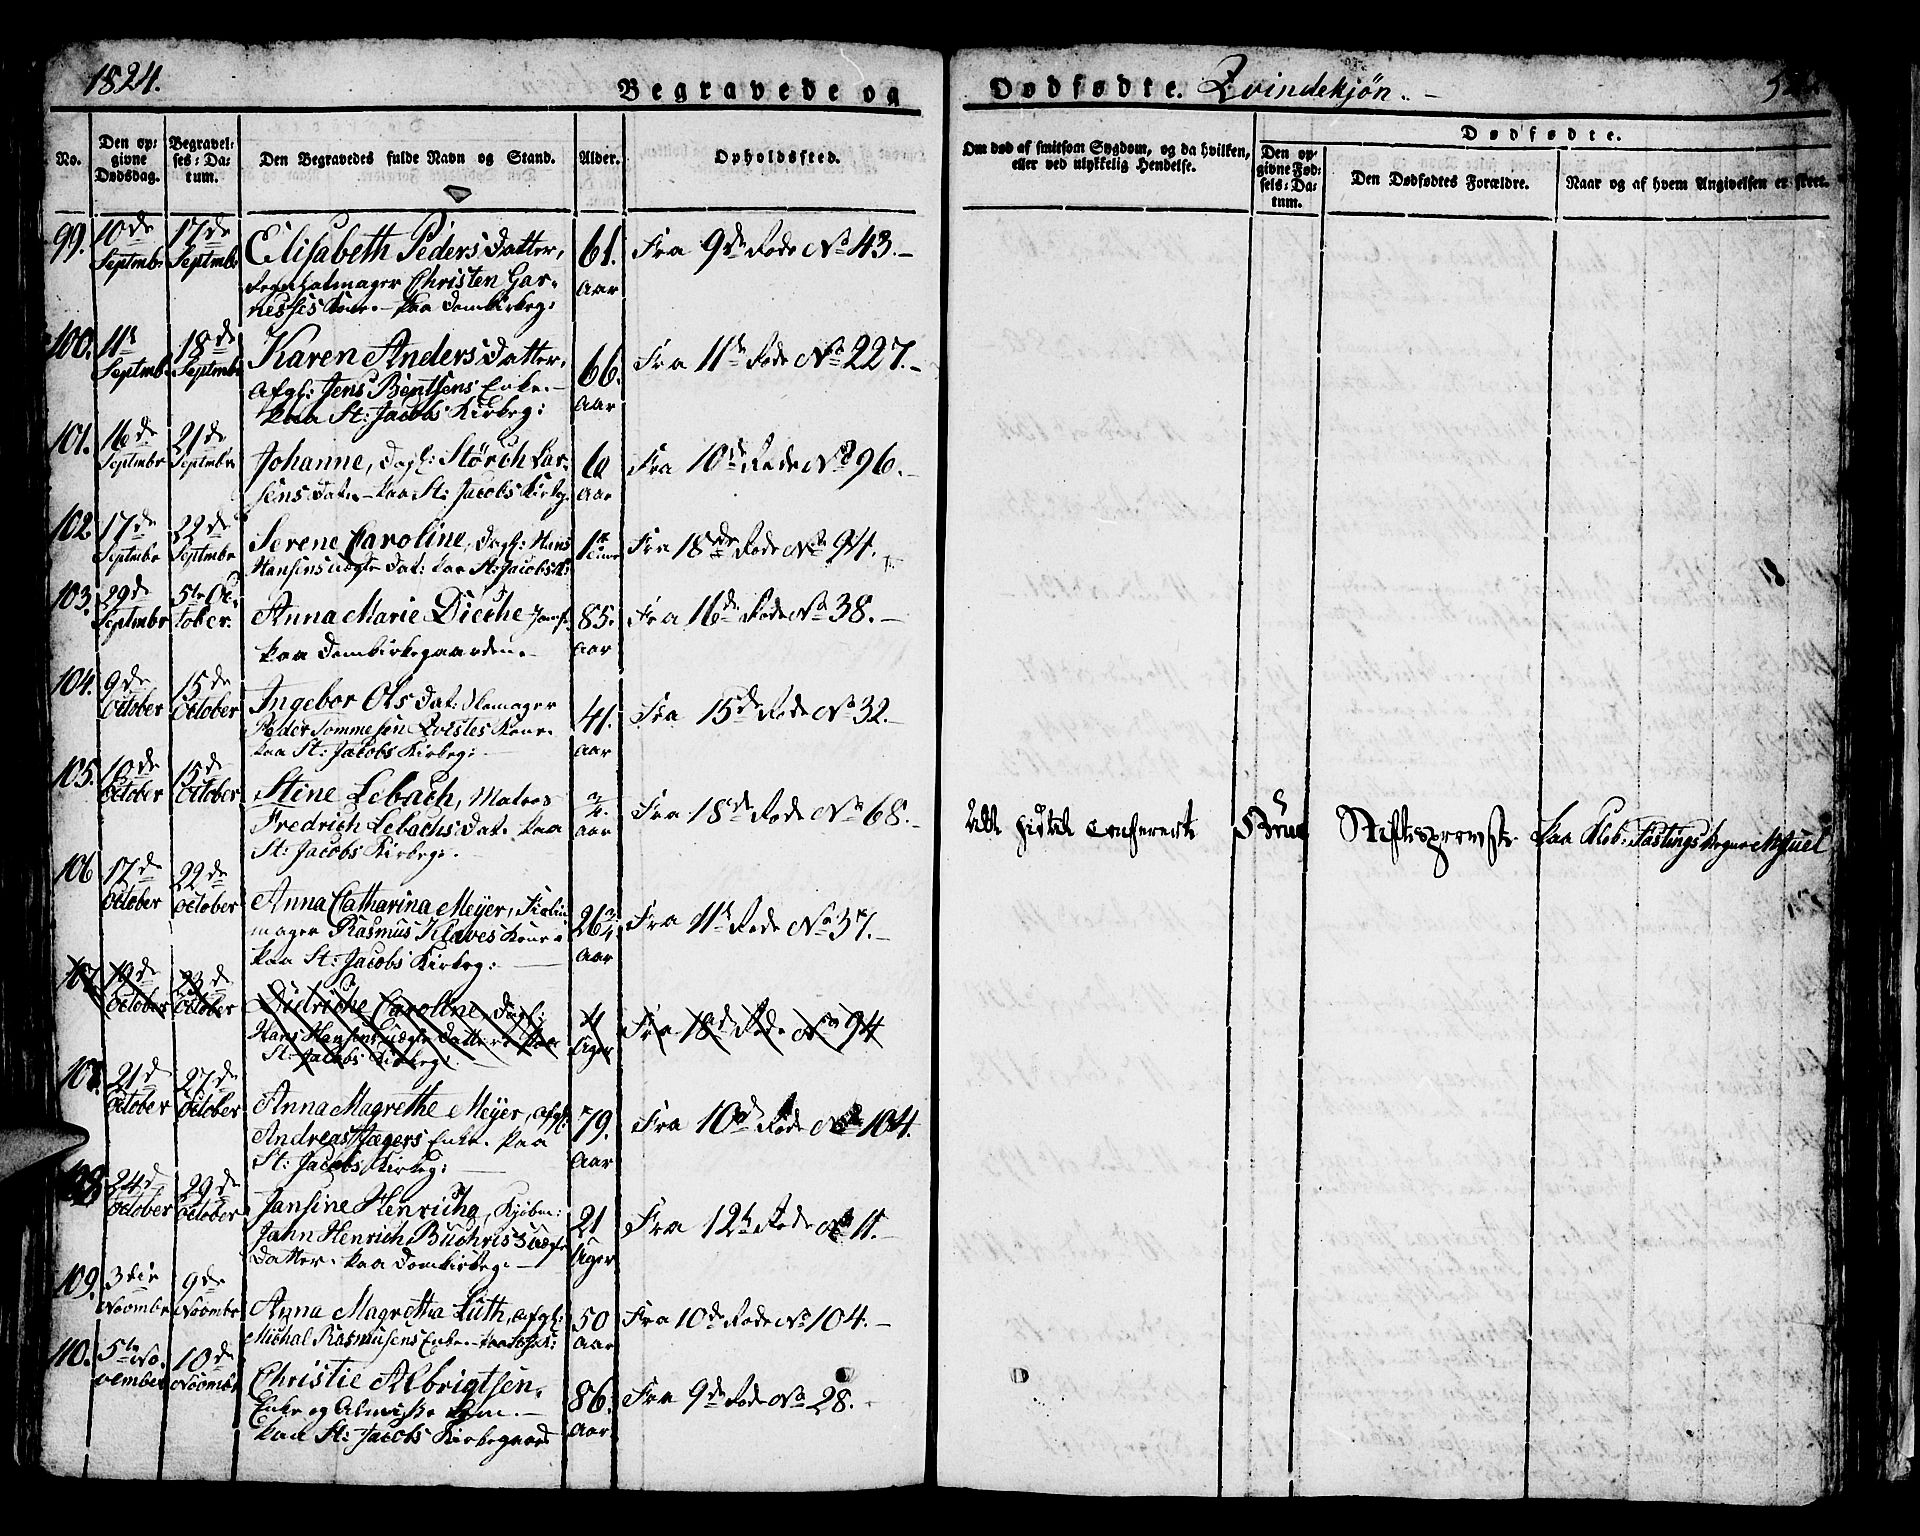 1824.
Begravede og
Dødfødte. Qvindekjøn.
No.
Den opgivne Dødsdag.
Begravelses-Datum.
Den Begravedes fulde Navn og Stand.
Alder.
Opholdssted.
Om død af smitsom Sygdom, og da hvilken, eller ved ulykkelig Hendelse.
Dødfødte.
Den opgivne Fødsels-Datum.
Den Dødfødtes Forældre.
Naar og af hvem Angivelsen er skeet.
99. 10de Septmbr 17de Septmbr Elisabeth Peders Datter, 61. Aar Fra 9de Rode No 43.
Christen Gar-
nesses Kone. - paa Domkirkeg:
100. 11te Septmbr 18de Septmbr Karen Anders Datter, 66. Aar Fra 11te Rode No 227.
Afgl: Jens Bentsens Enke. -
paa St: Jacobs Kirkeg:
101. 16de Septmbr 21de Septmbr Johanne, Dagl: Störch Lar- 60 Aar Fra 10de Rode No 96.
sens Dat. - paa St: Jacobs Kirkeg.
102 17de Septmbr 22de Septmbr Serene Caroline, Dagl: Hans Fra 18de Rode No 94.
Hansens uægte Dat: paa St: Jacobs K:
103. 29de Septmbr 5te October. Anna Marie Dieche 85. Aar Fra 16de Rode No 38.
paa Domkirkegaarden.
104. 9de October 15de October Ingebor Ols Dat: 41. Aar Fra 15de Rode No 32.
Peder Tommesen Qvistes Kone.
paa St: Jacobs Kirkeg:
105. 10de October 15de October Stine Lebach, Matros 3/4. Aar Fra 18de Rode No 68.
Fredrich Lebachs Dat. paa
St: Jacobs Kirkeg.
106 17de October 22de October Anna Catharina Meyer, 26 3/4 Aar Fra 11te Rode No 37.
mager Rasmus Klaves Kone
paa St: Jacobs Kirkeg:
107. 19de October 23de October Didriche Caroline, Dagl: Uger Fra 18de Rode No 94
Hans Hansens uægte Datter paa
St: Jacobs Kirkeg:
107. 21de October 27de October Anna Magrethe Meyer, afgl: 79. Aar Fra 10de Rode No 104.
Andreas Jægers Enke. paa
St: Jacobs Kirkeg:
108 24de October 29de October Jansine Henricha, Kjøbm: 21 Uger Fra 12te Rode No 11.
Jahn Henrich Buchris uægte
Datter. paa Domkirkeg.
109. 3die Novmbr 9de Novmbr Anna Magretha Lüth, afgl: 50 Aar Fra 10de Rode No 104.
Michal Rasmusens Enke.
110. 5te November 10de Novmbr Christie Albrigtsen, 86. Aar Fra 9de Rode No 28.
Enke og Almisse Lem.
paa St: Jacobs Kirkegaard